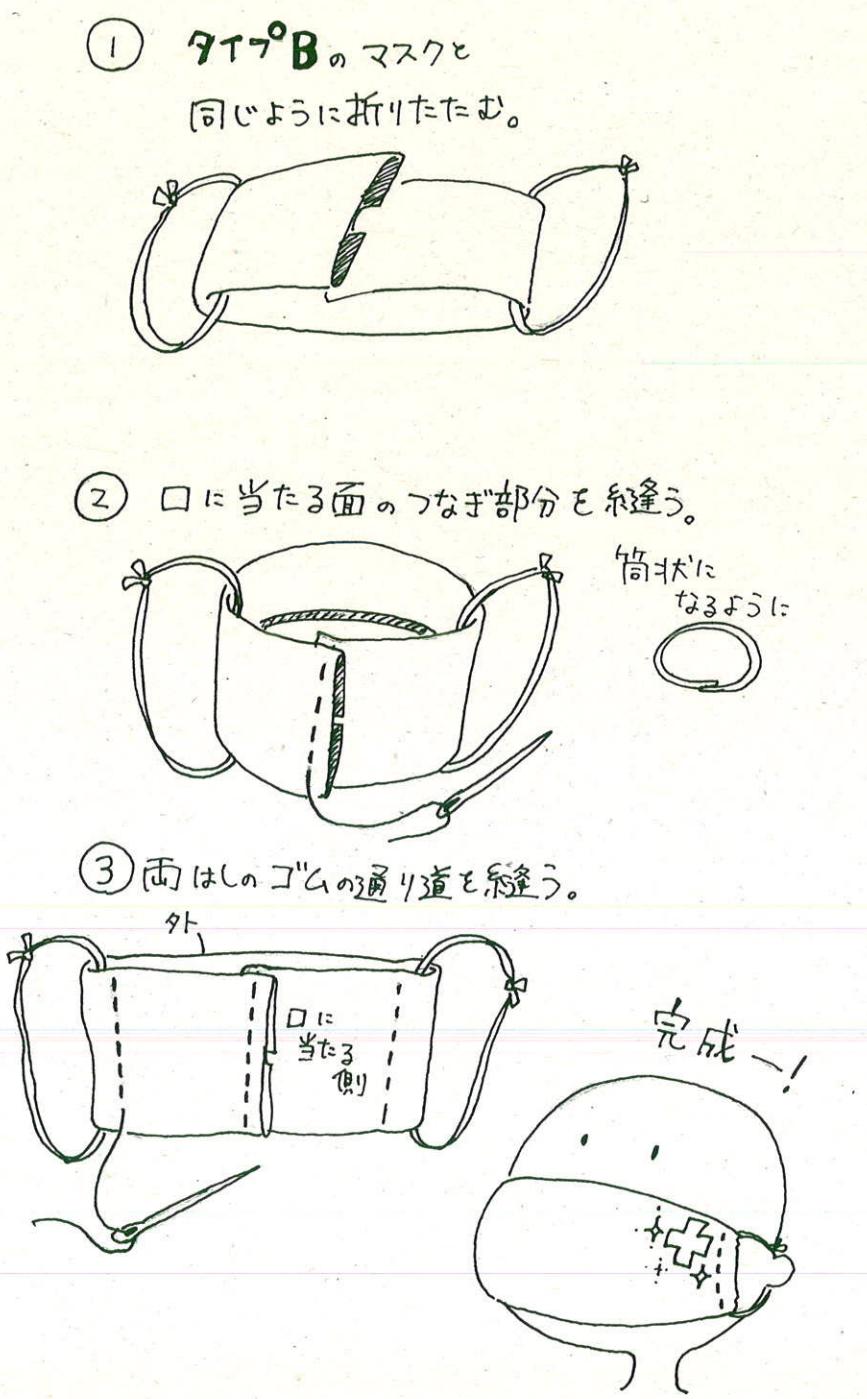 ① タイプBのマスクと
同じように折りたたむ。
② 口に当たる面のつなぎ部分を縫う。
筒状に
なるように
③ 両はしのゴムの通り道を縫う。
外
口に
当たる
側
完成ー!